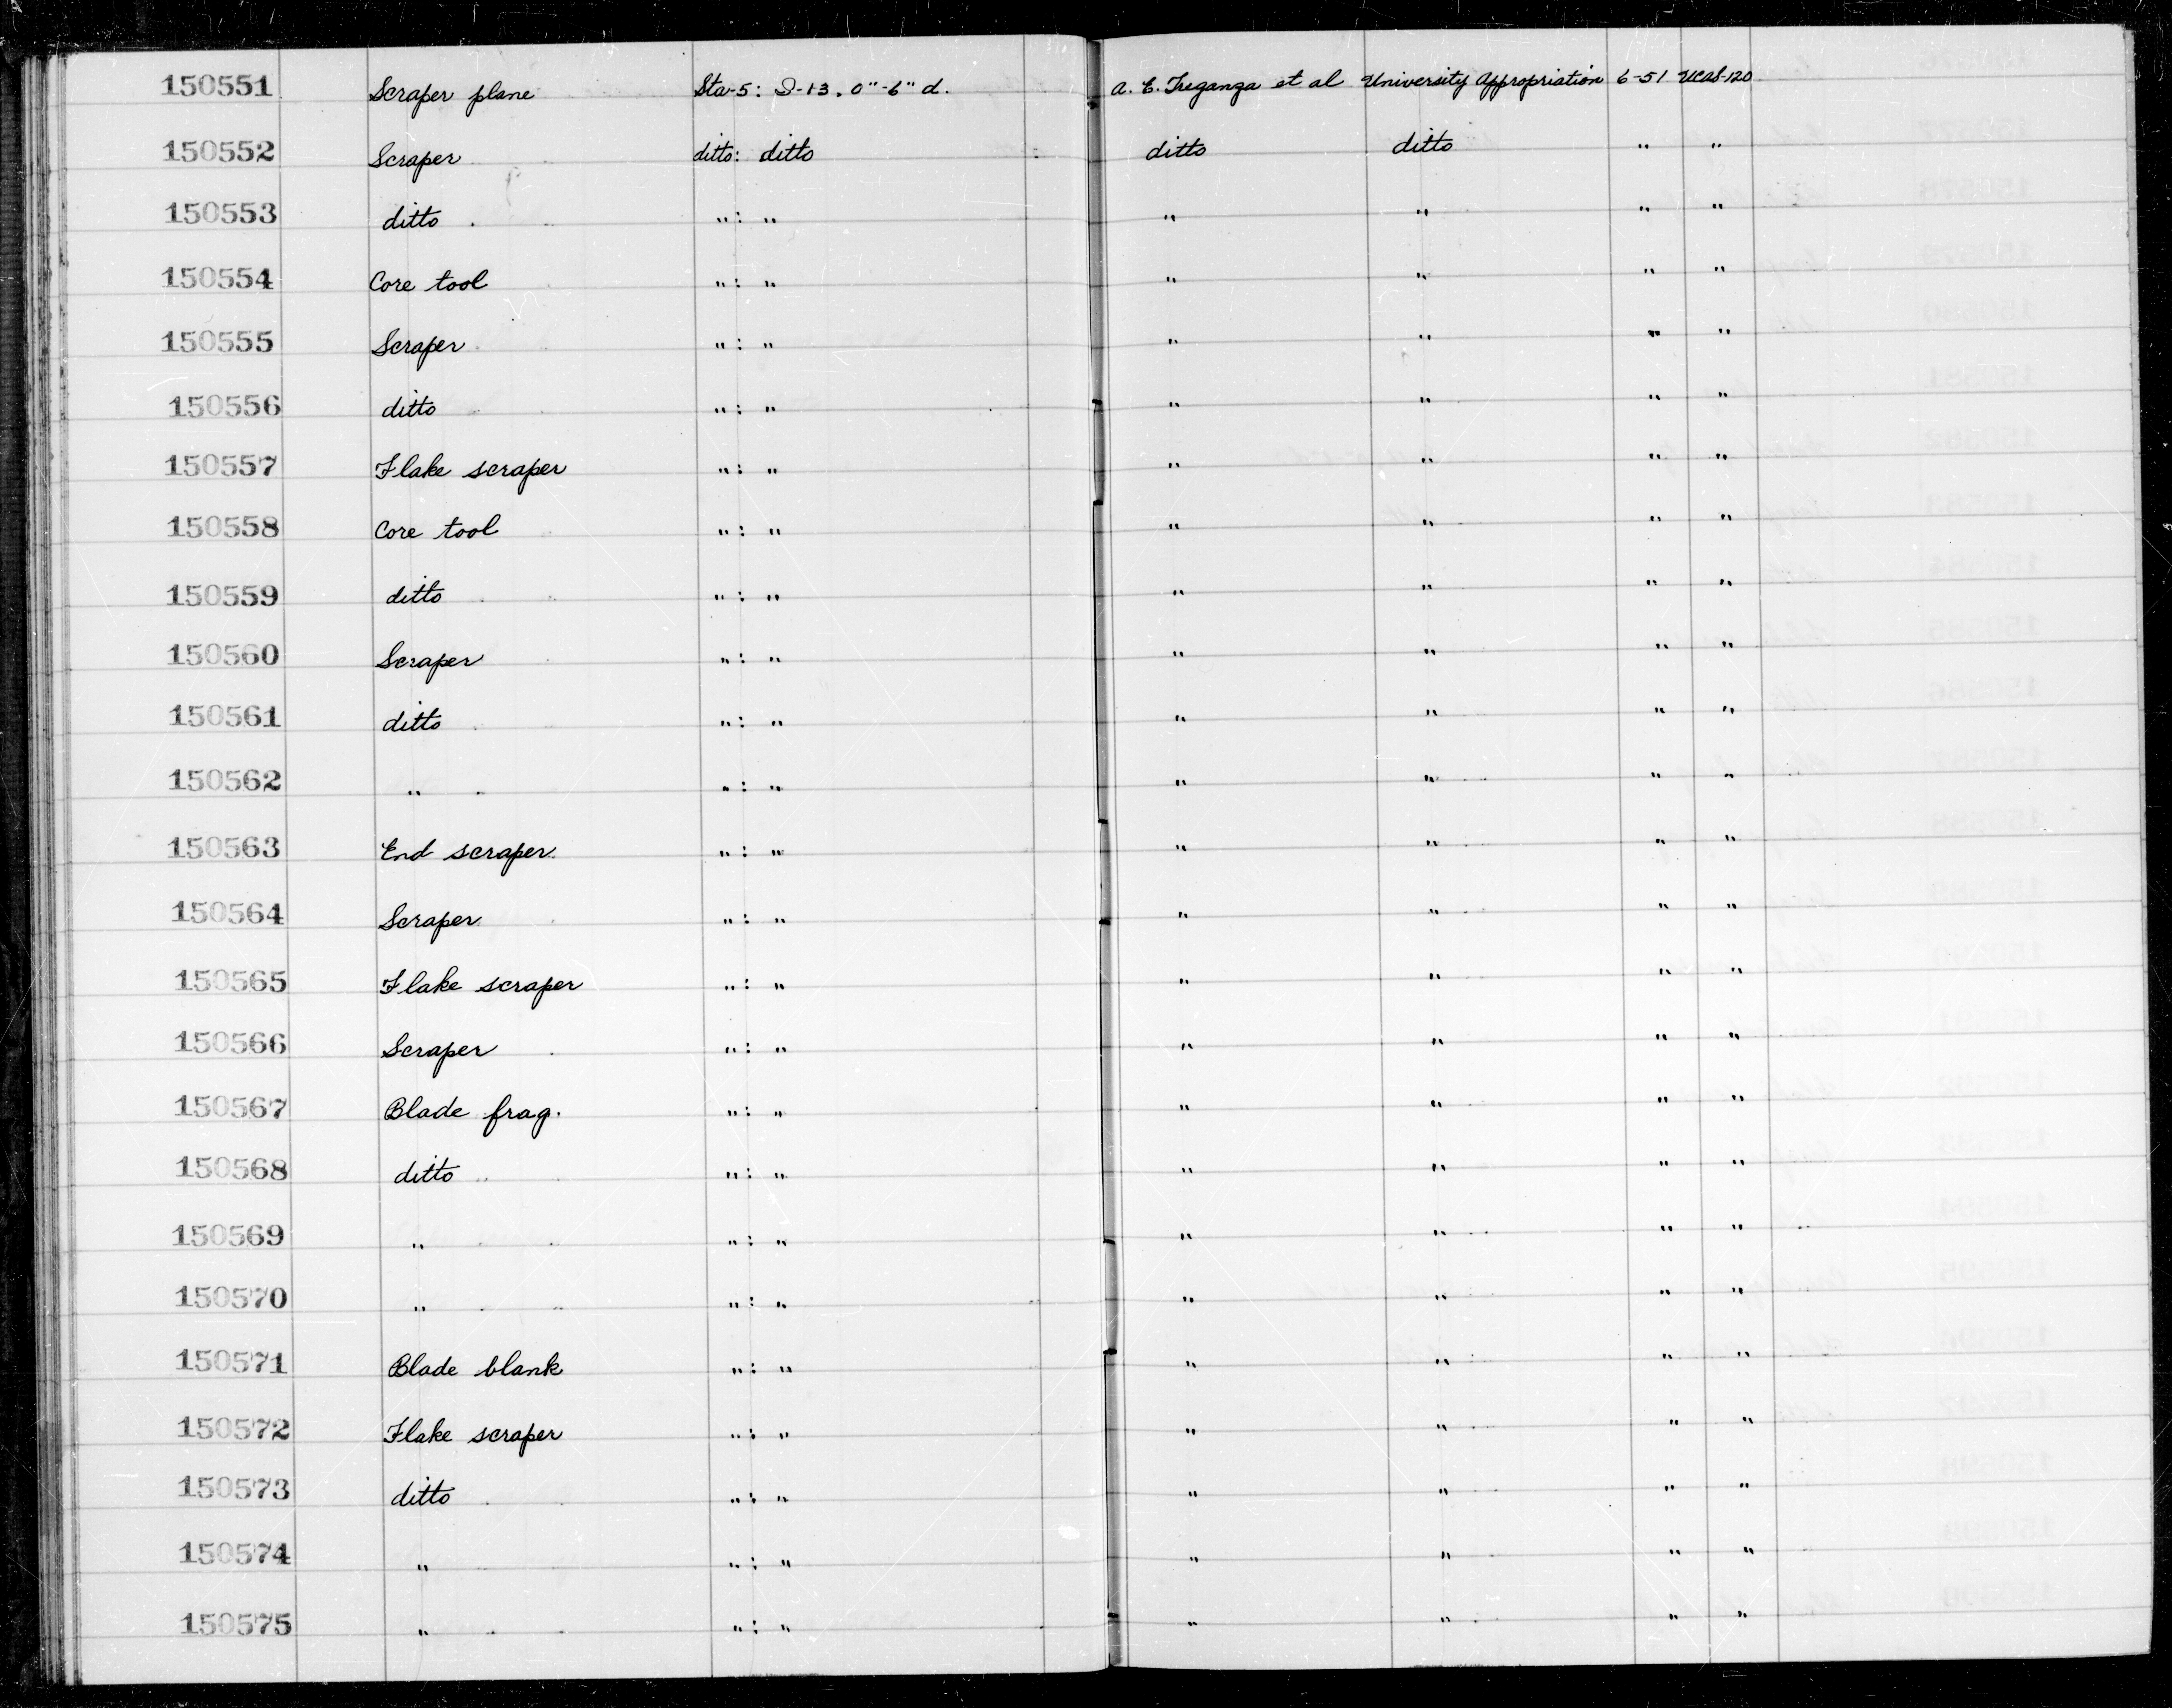 150551 Scraper plane Sta-5: I-13. 0"-6" d. A. E. Treganza et al University Appropriation 6-51 UCAS-120
150552 Scraper ditto: ditto ditto ditto " "
150553 ditto ": " " " " "
150554 Core tool ": " " " " "
150555 Scraper ": " " " " "
150556 ditto ": " " " " "
150557 Flake scraper ": " " " " "
150558 Core tool ": " " " " "
150559 ditto ": " " " " "
150560 Scraper ": " " " " "
150561 ditto ": " " " " "
150562 " ": " " " " "
150563 End scraper ": " " " " "
150564 Scraper ": " " " " "
150565 Flake scraper ": " " " " "
150566 Scraper ": " " " " "
150567 Blade frag. ": " " " " "
150568 ditto ": " " " " "
150569 " ": " " " " "
150570 " ": " " " " "
150571 Blade blank ": " " " " "
150572 Flake scraper ": " " " " "
150573 ditto ": " " " " "
150574 " ": " " " " "
150575 " ": " " " " "